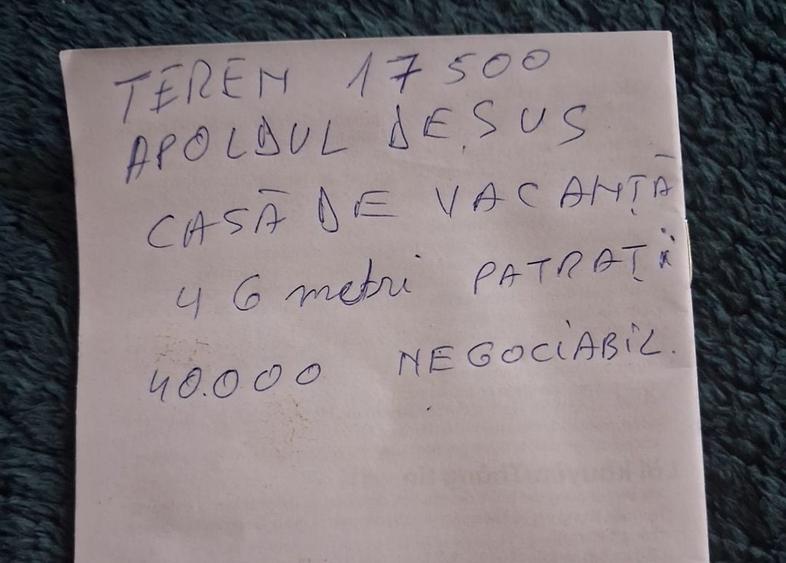 TEREN 17500
APOLDUL DE SUS
CASĂ DE VACANȚĂ
46 metri PATRAȚi
40.000 NEGOCiABiL.